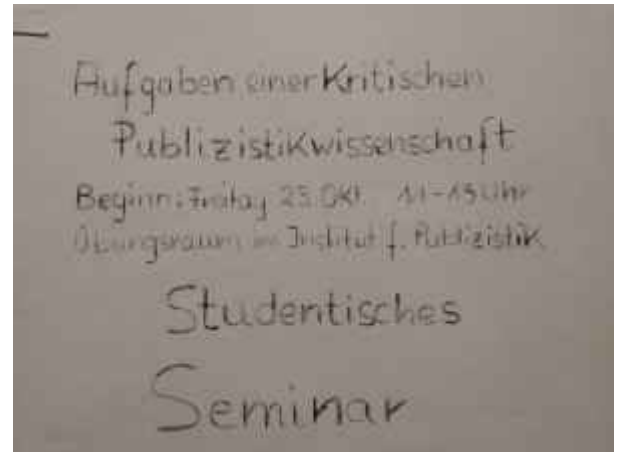 Aufgaben einer Kritischen
Publizistikwissenschaft
Beginn: Freitag 25. Okt. 11-13 Uhr
Übungsraum im Institut f. Publizistik
Studentisches
Seminar